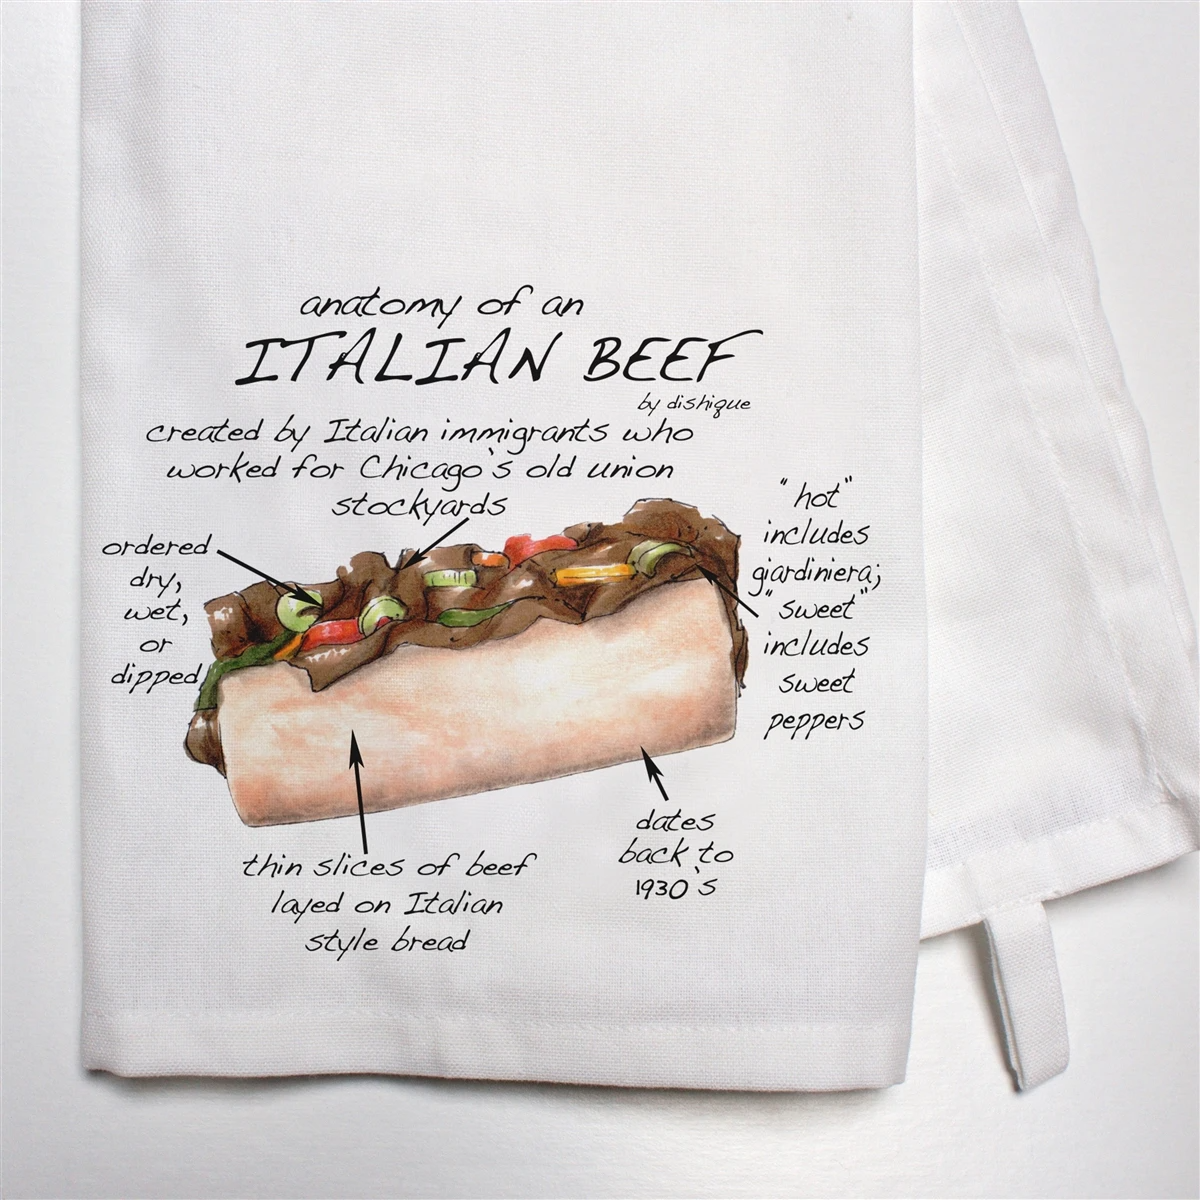 anatomy of an
ITALIAN BEEF
by dishique
created by Italian immigrants who
worked for Chicago's old union
stockyards
ordered
dry,
wet,
or
dipped
"hot"
includes
giardiniera;
"sweet"
includes
sweet
peppers
thin slices of beef
layed on Italian
style bread
dates
back to
1930's